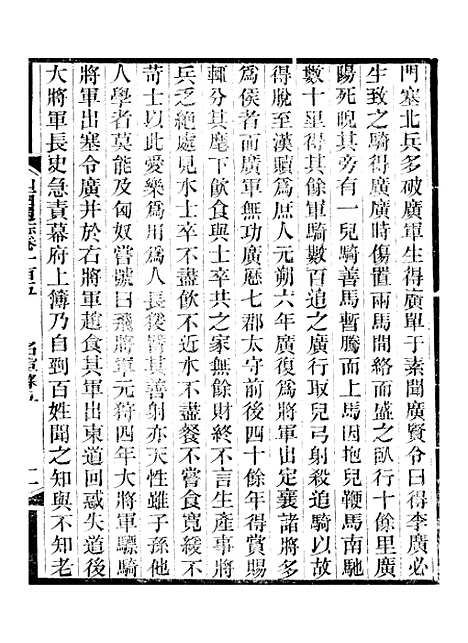 門塞北兵多破廣軍生得廣單于素聞廣賢令曰得李廣必
生致之騎得廣廣時傷置兩馬間絡而盛之臥行十餘里廣
陽死睨其旁有一兒騎善馬暫騰而上馬因抱兒鞭馬南馳
數十里得其餘軍騎數百追之廣行取兒弓射殺追騎以故
得脫至漢贖爲庶人元朔六年廣復爲將軍出定襄諸將多
爲侯者而廣軍無功廣歷七郡太守前後四十餘年得賞賜
輒分其麾下飲食與士卒共之家無餘財終不言生產事將
兵乏絕處見水士卒不盡飲不盡餐不嘗食寬緩不
苛士以此愛樂爲用爲人長猨臂其善射亦天性雖子孫他
人學者莫能及匈奴嘗號曰飛將軍元狩四年大將軍驃騎
將軍出塞令廣并於右將軍趙食其軍出東道回惑失道後
大將軍長史急責幕府上簿乃自剄百姓聞之知與不知老